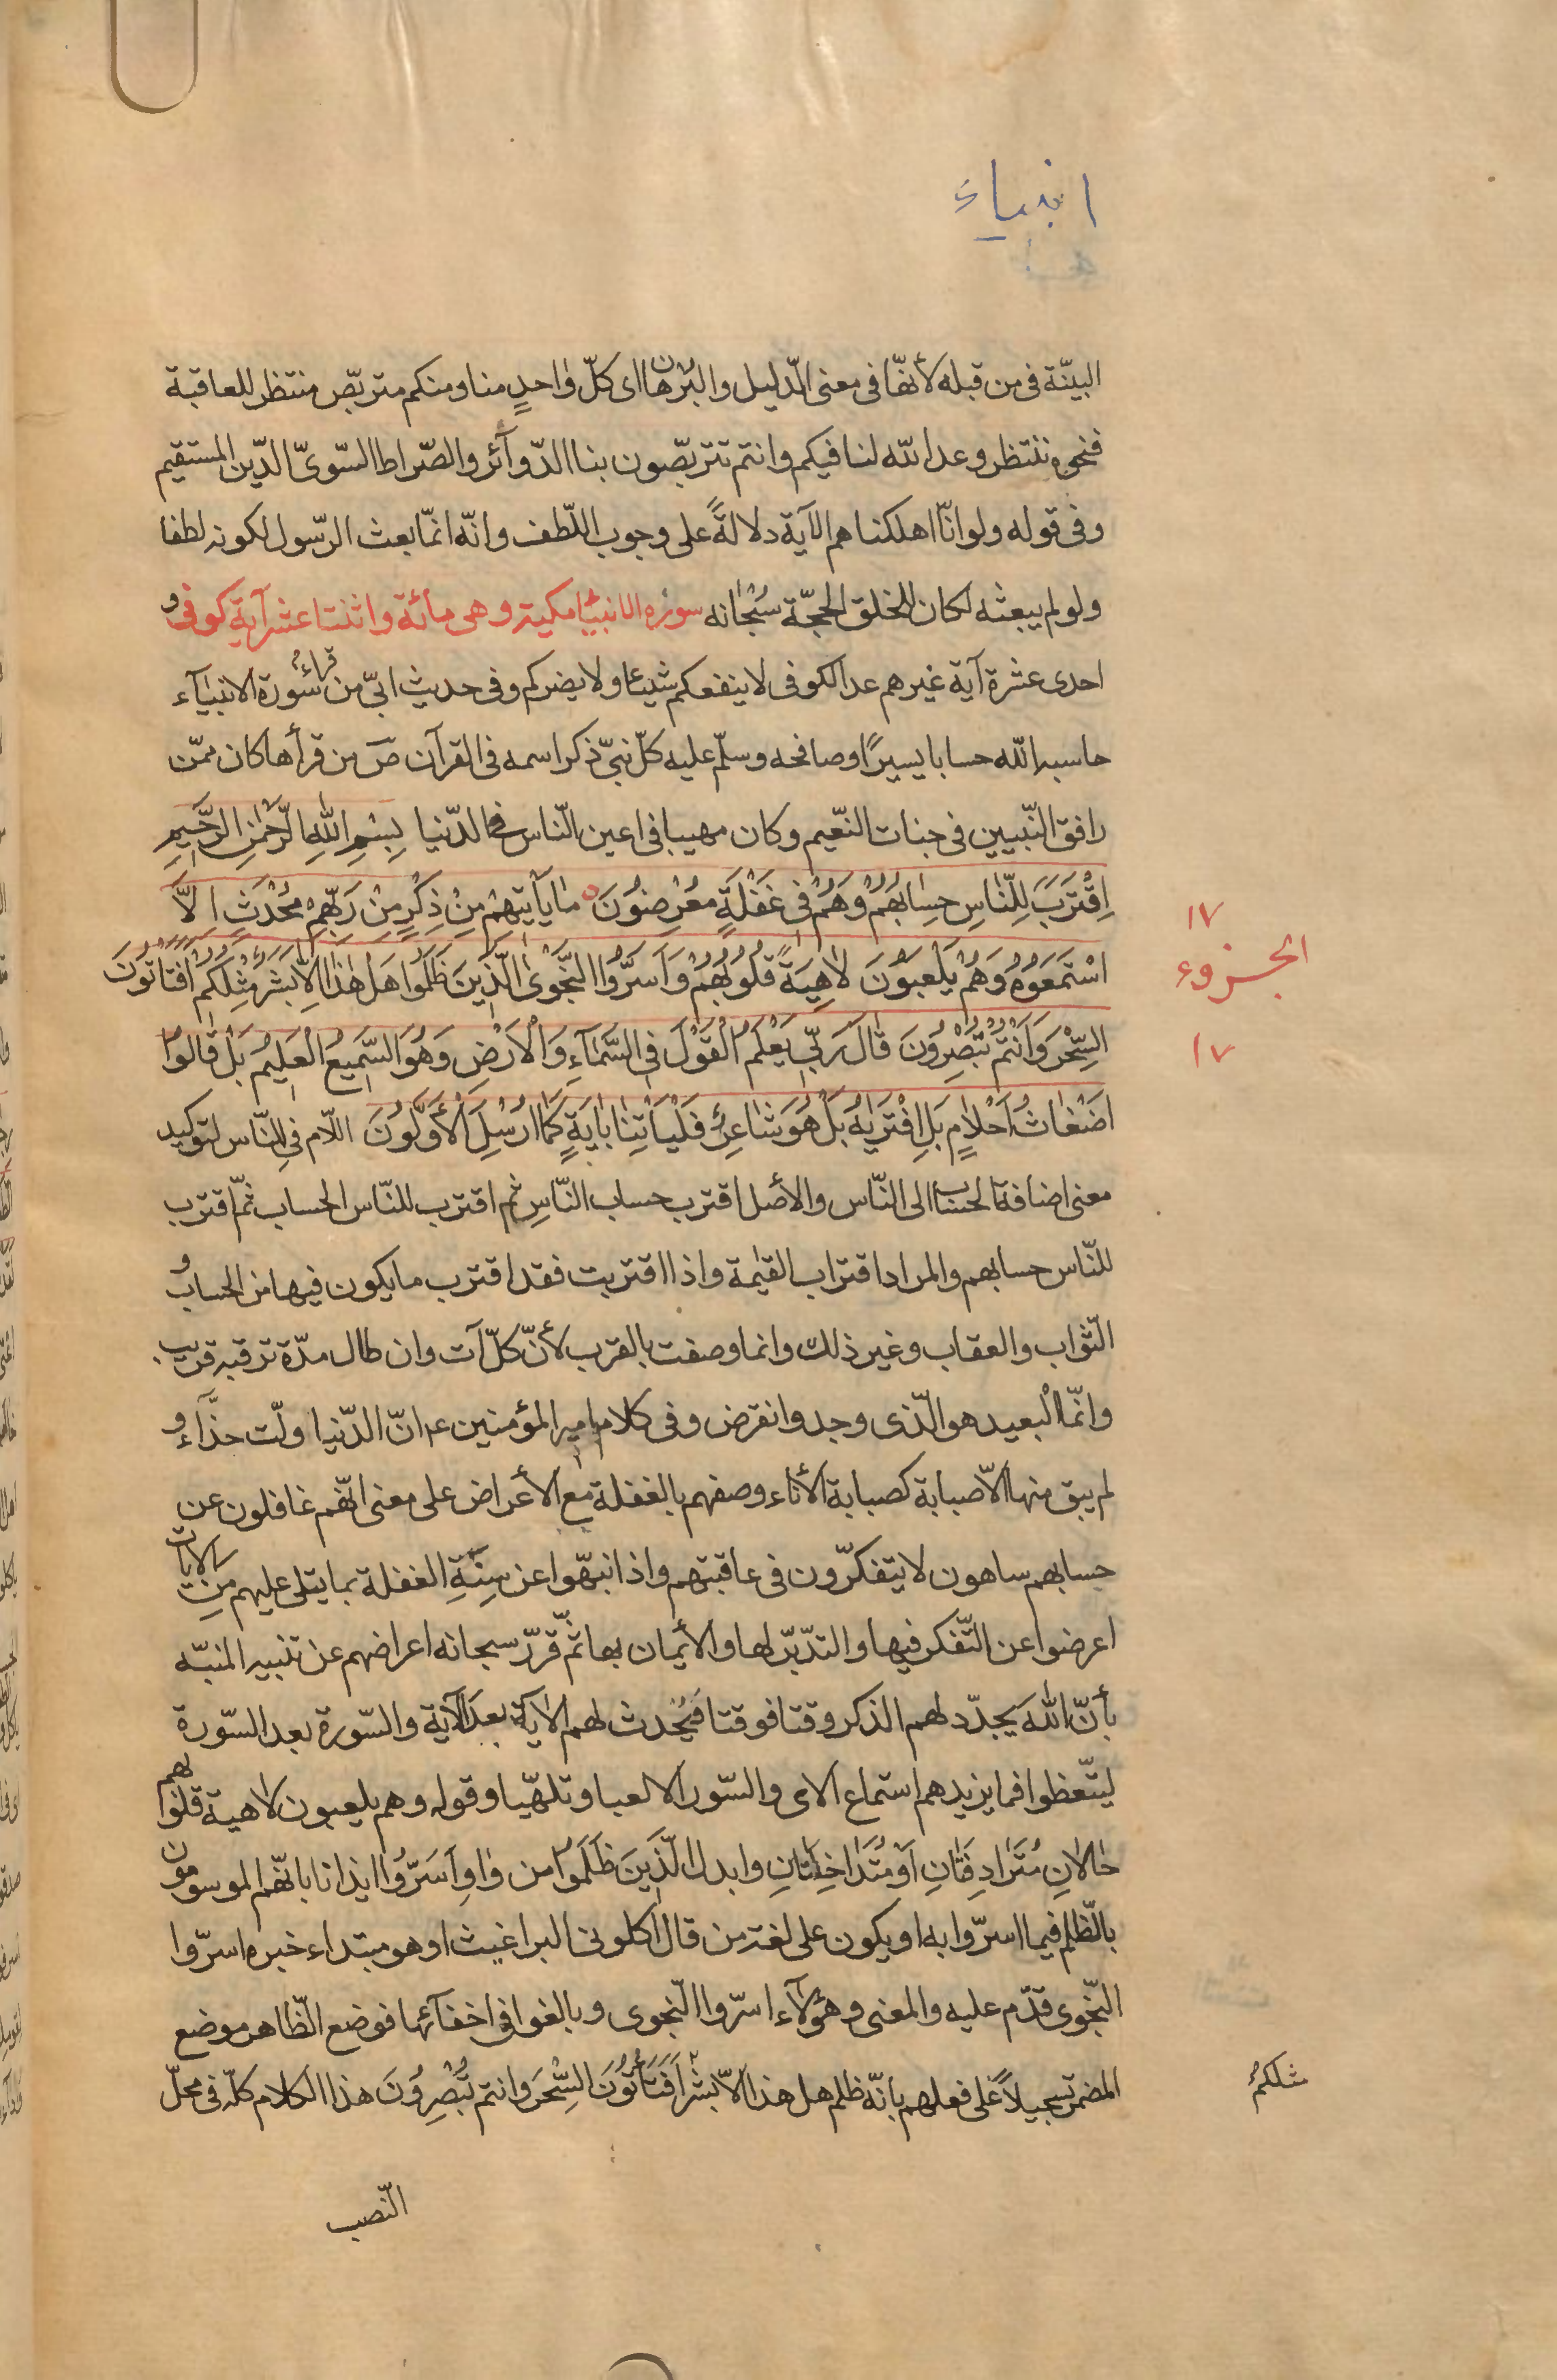 انبياء
البيّنة فى من قبله لأنهّا فى معنى الدّليل والبرهان اى كلّ واحدٍ منا ومنكم متربّص منتظر للعاقبة
فنحن ننتظر وعد الله لنا فيكم وانتم تتربّصون بنا الدّوآئر والصّراط السّوىّ الدّين المستقيم
وفى قوله ولو انّا اهلكناهم الآية دلالةً على وجوب اللّطف وانّه انمّا بعث الرّسول لكونه لطفا
ولو لم يبعثه لكان للخلق الحجّة سُبْحانه سوره الانبيا مكية وهى مأئة واثنتا عشر آية كوفى و
احدى عشرة آية غيرهم عد الكوفى لا ينفعكم شيئا ولا يضركم وفى حديث ابىّ من قراء سُورة الانبيآء
حاسبه الله حسابا يسيرًا وصافحه وسلّم عليه كلّ نبىّ ذكر اسمه فى القرآن صَ من قرأها كان ممّن
رافق النّبيين فى جنات النعّيم وكان مهيبا فى اعين النّاس فى الدّنيا بِسْمِ اللهِ الرَّحْمٰنِ الرَّحيمِ
اِقْتَرَبَ لِلنّاسِ حِسٰابُهُمْ وَهُمْ فى غَفْلَةٍ مُعْرِضُونَ مٰا يَأتيهِمْ مِنْ ذِكْرٍ مِنْ رَبِّهِمْ مُحْدَثٍ اِلاَّ
١٧
الجزوء
١٧
اسْتَمَعُوهُ وَهُمْ يَلْعَبُونَ لاٰهِيَةً قُلُوبُهُمْ وَاَسَرُّوا النَّجْوىٰ الَّذينَ ظَلَمُوا هَلْ هٰذٰا اِلاّٰ بَشَرٌ مِثْلُكُمْ اَفَتَأتُونَ
السِّحْرَ وَاَنْتُمْ تُبْصِرُونَ قٰالَ رَبّى يَعْلَمُ الْقَوْلَ فِى السَّمٰآءِ وَالْاَرْضِ وَهُوَ السَّميعُ الْعَليمُ بَلْ قٰالُوا
اَضْغٰاثُ اَحْلاٰمٍ بَلِ افْتَرٰيهُ بَلْ هُوَ شٰاعِرٌ فَلْيَأتِنٰا بِاٰيَةٍ كَمٰا اُرْسِلَ الْأَوَّلُونَ اللاّم فى للنّاس لتوكيد
معنى اضافة الحساب الى النّاس والأصل اقترب حساب النّاسِ ثم اقترب للنّاس الحساب ثمّ اقترب
للنّاس حسابهم والمراد اقتراب القيٰمة واذا اقتربت فقد اقترب ما يكون فيها من الحساب و
الثّواب والعقاب وغير ذلك وانما وصفت بالقرب لأنّ كلّ آت وان طال مدّة ترقبه قريب
وانمّا البعيد هو الّذى وجد وانقرض وفى كلام امير المؤمنين ع انّ الدّنيا ولّت حذّاء و
لم يبق منها الاّ صبابة كصبابة الأناء وصفهم بالغفلة مع الأعراض على معنى انّهم غافلون عن
حسابهم ساهون لا يتفكرّون فى عاقبتهم واذا نبهّوا عن سِنَةِ الغفلة بما يتلى عليهم مِن الايات
اعرضوا عن التّفكر فيها والتدبّر لها والأيمان بها ثمّ قرّر سبحانه اعراضهم عن تنبيه المنبّه
بأنّ الله يجدّد لهم الذكر وقتا فوقتا فيُحْدث لهم الاية بعد الآية والسّورة بعد السّورة
ليتّعظوا فما يزيدهم استماع الاى والسّور الا لعبا وتلهّيا وقوله وهم يلعبون لاهية قلوبهم
حٰالانِ مُتَرٰادِفَتٰانِ اَوْ مُتَدٰاخِلَتٰانِ وابدل الَّذينَ ظَلَمُوا من وٰاوِ اَسَرُّوا ايذانا بانّهم الموسومون
بالظّلم فيما اسرّوا به او يكون على لغة من قال اكلونى البراغيث او هو مبتداء خبره اسرّوا
النّجوى قدّم عليه والمعنى وهؤلآء اسرّوا النّجوى وبالغوا فى اخفآئها فوضع الظّاهر موضع
المضمر تسجيلاً على فعلهم بأنّه ظلم هل هذا الاّ بشر اَفَتَأتُونَ السِّحْرَ وانتم تُبْصِرُونَ هذا الكلام كلّه فى محلّ
مثلكم
النّصب